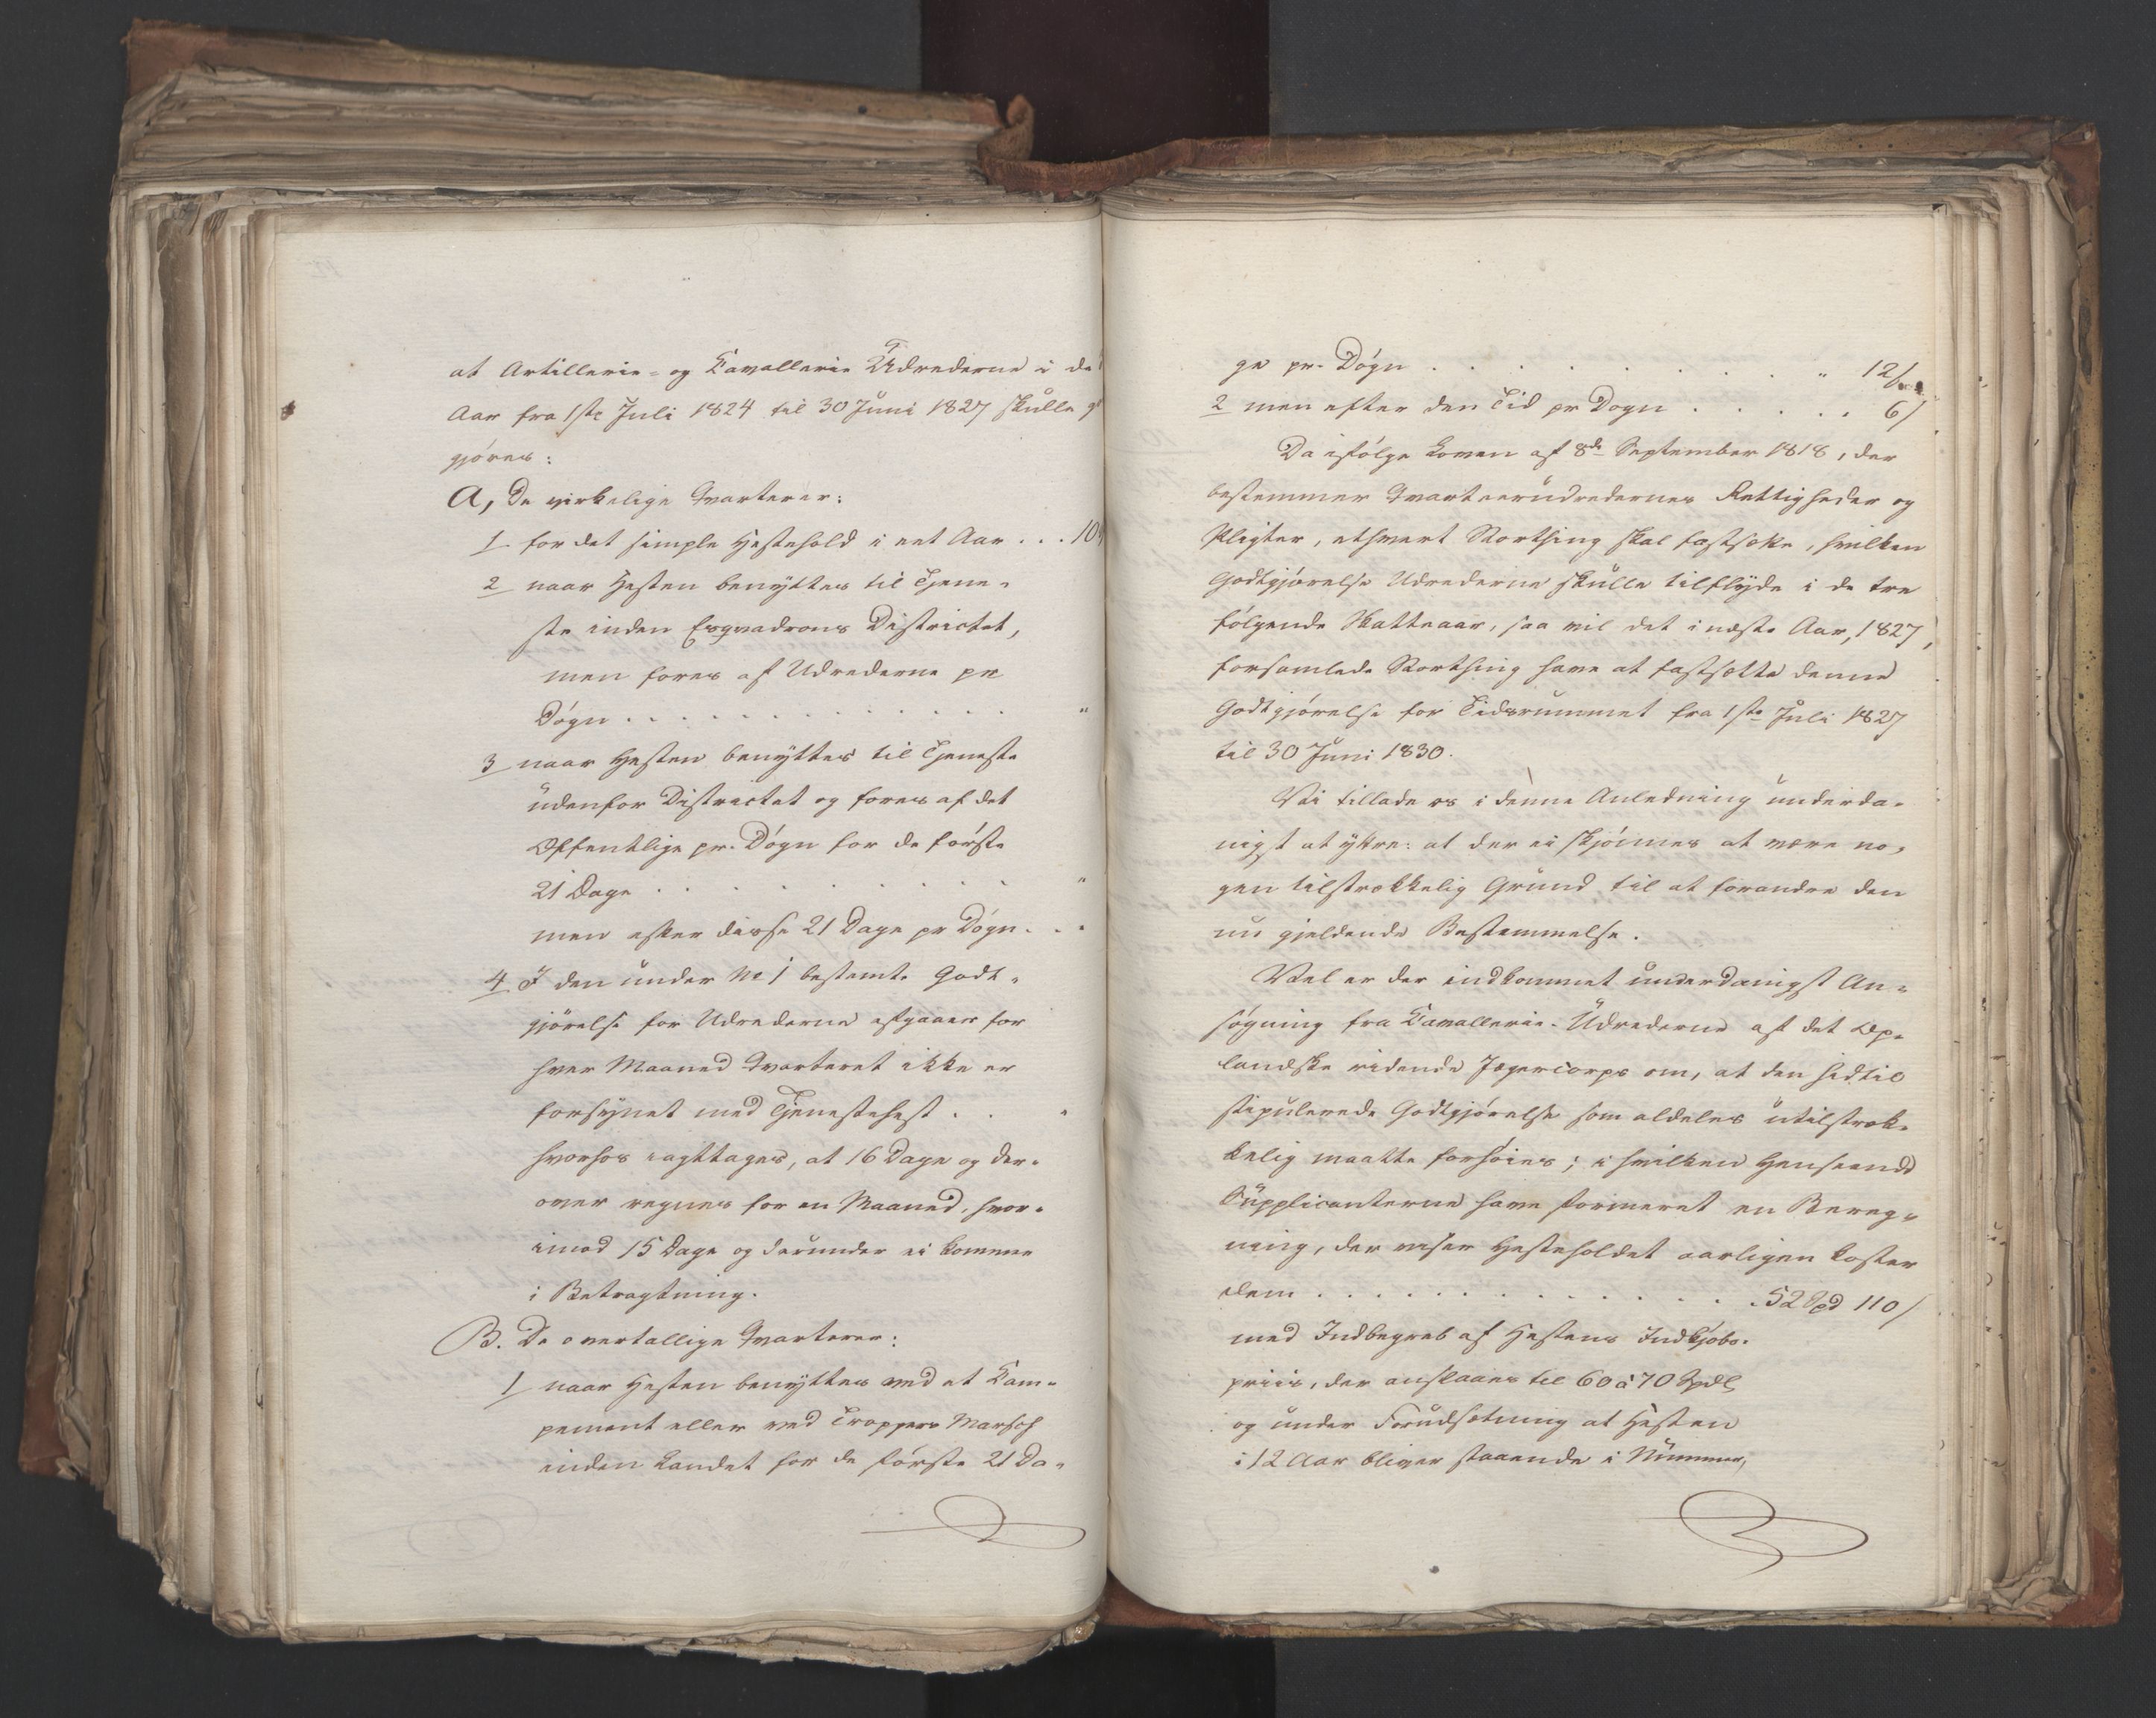 at Artillerie- og Cavallerie Udrederne i de
Aar fra 1ste Juli 1824 til 30 Juni 1827 skulle
gjöres:
A, De virkelige Qvarterer:
1 for det simple Hestehold i eet Aar . . . 10
2 naar Hesten benyttes til Tjene-
ste inden Esqvadrons Districtet,
men fores af Udrederne pr
Dögn . . . . . . . . . . "
3 naar Hesten benyttes til Tjeneste
udenfor Districtet og fores af det
Offentlige pr. Dögn for de förste
21 Dage . . . . . . . . . "
men efter disse 21 Dage pr Dögn . . .
4 I den under No 1 bestemte Godt-
gjörelse for Udrederne afgaaer for
hver Maaned Qvarteret ikke er
forsynet med Tjenestehest . . "
hvorhos iagttages, at 16 Dage og der-
over regnes for en Maaned, hvor-
imod 15 Dage og derunder ei komme
i Betragtning.
B. De overtallige Qvarterer:
1 naar Hesten benyttes ved et Cam-
pement eller ved Troppers Marsch
inden Landet for de förste 21 Da-
ge pr. Dögn . . . . . . . . " 12/
2 men efter den Tid pr Dogn . . . . . 6/
Da ifölge Loven af 8de September 1818, der
bestemmer Qvarteerudredernes Rettigheder og
Pligter, ethvert Storthing skal fastsætte, hvilken
Godtgjörelse Udrederne skulle tilflyde i de tre
fölgende Skatteaar, saa vil det i næste Aar, 1827,
forsamlede Storthing have at fastsætte denne
Godtgjörelse for Tidsrummet fra 1ste Juli 1827
til 30 Juni 1830.
Vi tillade os i denne Anledning underda-
nigst at yttre: at der ei skjönnes at være no-
gen tilstrækkelig Grund til at forandre den
nu gjeldende Bestemmelse.
Vel er der indkommet underdanigst An-
sögning fra Cavallerie-Udrederne af det Op-
landske ridende Jægercorps om, at den hidtil
stipulerede Godtgjörelse som aldeles utilstræk-
kelig maatte forhöies; i hvilken Henseende
Supplicanterne have formeret en Bereg-
ning, der viser Hesteholdet aarligen koster
dem . . . . . . . . . . . . . 52 Spd 110/
med Indbegreb af Hestens Indkjöbs-
priis, der anslaaes til 60 à 70 Spdl,
og under Forudsætning at Hesten
i 12 Aar bliver staaende i Nummer,